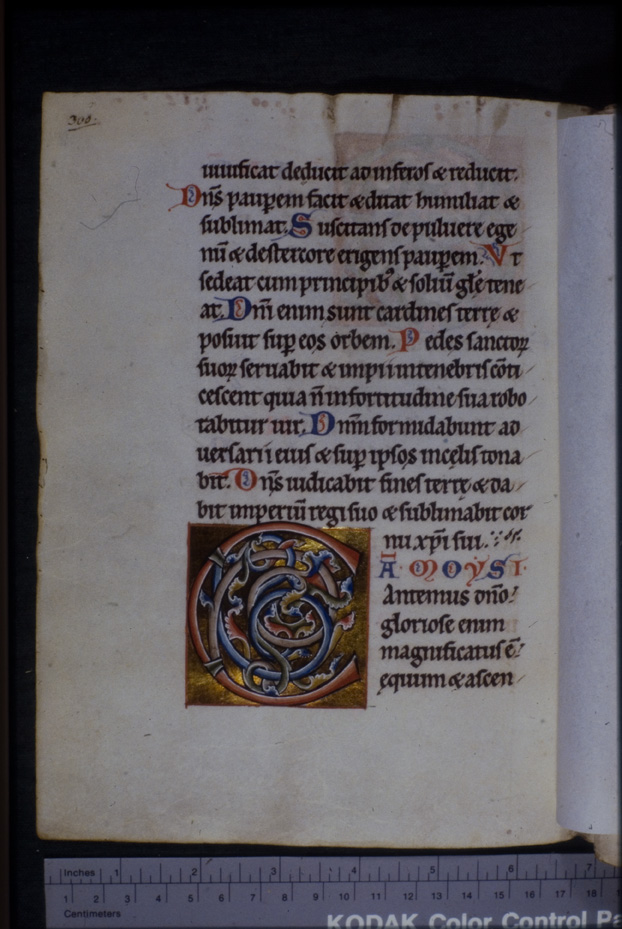 300.
uiuificat deducit ad inferos & reducit.
Dn̄s paup̄em facit & ditat humiliat &
sublimat. Suscitans de puluere ege
nū & de stercore erigens paup̄em. Vt
sedeat cum principib; & soliū glę tene
at. Dn̄i enim sunt cardines terrę &
posuit sup̄ eos orbem. Pedes sanctoꝝ
suoꝝ seruabit & impii in tenebris cōti
cescent quia n̄ in fortitudine sua robo
rabitur uir. Dn̄m formidabunt ad
uersarii eius & sup̄ ipsos in cęlis tona
bit. Dn̄s iudicabit fines terrę & da
bit imperiū regi suo & sublimabit cor
nu xp̄i sui.
A MOYSI.
Cantemus dn̄o
gloriose enim
magnificatus ē
equum & ascen
Inches 1 2 3 4 5 6 7
1 2 3 4 5 6 7 8 9 10 11 12 13 14 15 16 17 18
Centimeters
KODAK Color Control Pa